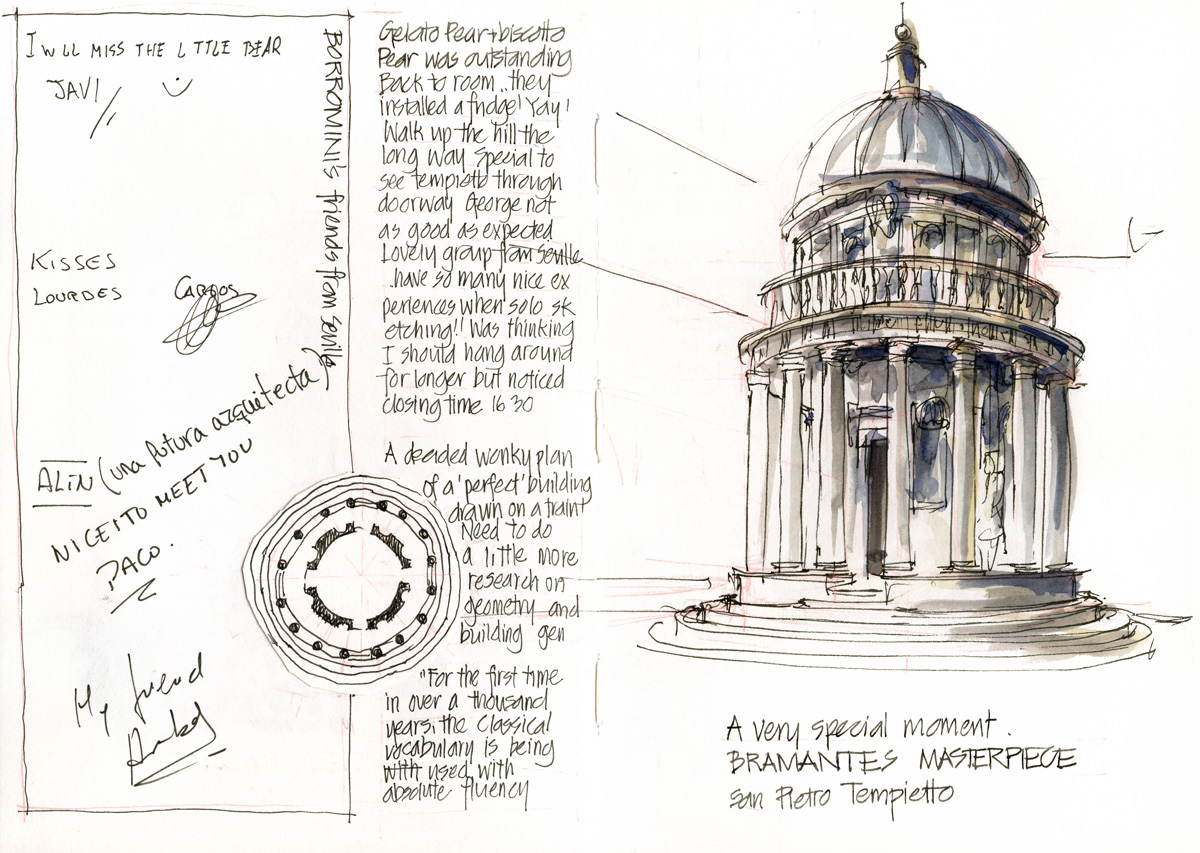 I WLL MISS THE LITTLE BEAR
JAVI
KISSES
LOURDES
CARLOS
ALIN (una futura arquitecta)
NICE TO MEET YOU
PACO.
My friend
BORROMINI's friends from Seville
Gelato Pear + biscotto
Pear was outstanding
Back to room .. they
installed a fridge! Yay!
Walk up the hill the
long way special to
see tempietto through
doorway George not
as good as expected
Lovely group from Seville
..have so many nice ex
periences when solo sk
etching!! Was thinking
I should hang around
for longer but noticed
closing time 16 30
A deaded wonky plan
of a 'perfect' building
drawn on a train!
Need to do
a little more
research on
geometry and
building gen
"For the first time
in over a thousand
years, the Classical
vocabulary is being
with used with
absolute fluency
A very special moment.
BRAMANTES MASTERPIECE
San Pietro Tempietto